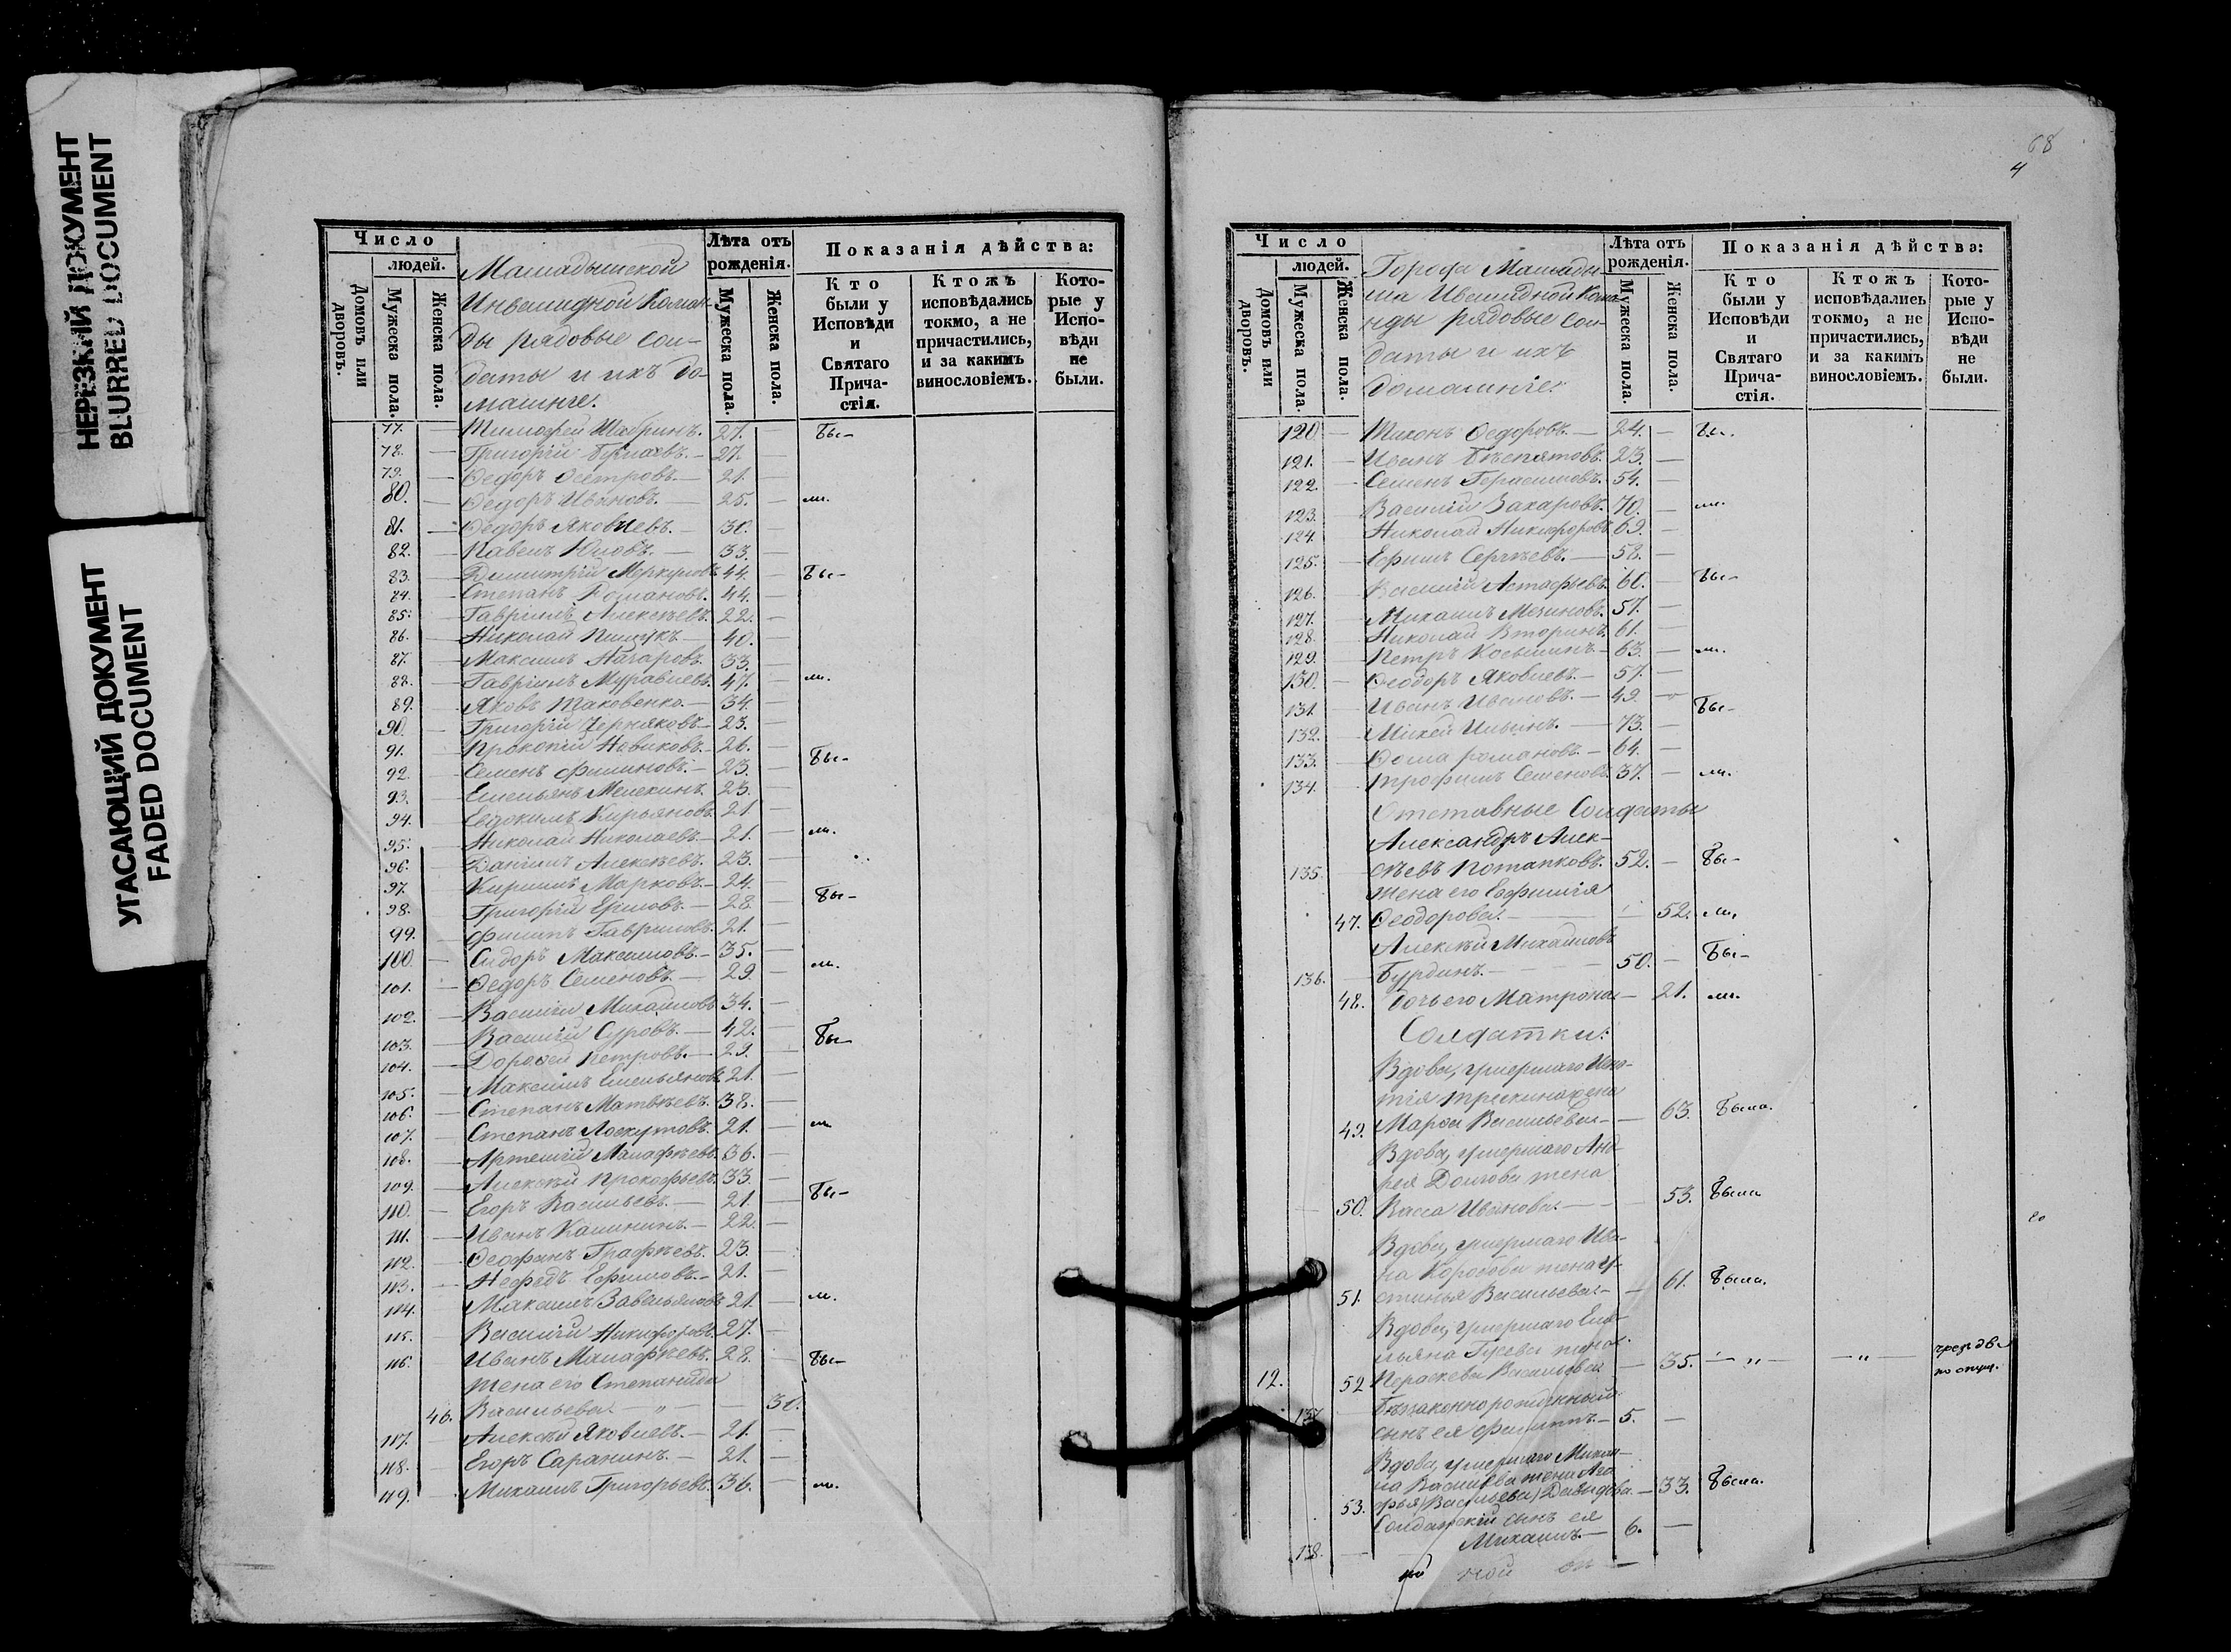 НЕРЕЗКИЙ ДОКУМЕНТ
BLURRED DOCUMENT
УГАСАЮЩИЙ ДОКУМЕНТ
FADED DOCUMENT
Число
людей.
Домовъ или дворовъ.
Мужеска пола.
Женска пола.
Малмыжской
Инвалидной Коман-
ды рядовые сол-
даты и ихъ до-
машніе.
Лѣта отъ рожденія.
Мужеска пола.
Женска пола.
Показанія дѣйства:
Кто были у Исповѣди и Святаго Прича-стія.
Ктожъ исповѣдались токмо, а не причастились, и за какимъ винословіемъ.
Кото-рые у Испо-вѣди не были.
77. — Тимофей Шабринъ. 27. — бы-
78. — Григорій 27. —
79. — Ѳедоръ Осетровъ. — 21. —
80. — Ѳедоръ Ивановъ. — 25. — ли.
81. — Ѳедоръ Яковлевъ. — 30. —
82. — Павелъ Юловъ. — 33. —
83. — Димитрій Меркуловъ 44. — бы-
84. — Степанъ Романовъ. 44. —
85. — Гавріилъ Алексѣевъ. 22. —
86. — Николай Пищукъ. — 40. —
87. — Максимъ Назаровъ. 33. —
88. — Гавріилъ Муравлевъ. 47. — ли.
89. — Яковъ Маковенко. — 34. —
90. — Григорій Черняковъ. — 23. —
91. — Прокопій Новиковъ. — 26. —
92. — Семенъ Филиновъ. — 23. — бы-
93. — Емельянъ Мелекинъ. 23. —
94. — Евдокимъ Кирьяновъ. 21
95. — Николай Николаевъ. — 21. — ли.
96. — Даніилъ Алексѣевъ. 23. —
97. — Кириллъ Марковъ. — 24. —
98. — Григорій Ершовъ. — 28. — бы-
99. — Филипъ Гавриловъ. 21. —
100. — Сидоръ Максимовъ. — 35. —
101. — Ѳедоръ Семеновъ. — 29. — ли.
102. — Василій Михайловъ 34. —
103. — Василій Суровъ. — 42. — бы-
104. — Дороѳей Петровъ. — 29. —
105. — Максимъ Емельяновъ 21. —
106. — Степанъ Матвѣевъ. 38. —
107. — Степанъ Лоскутовъ. 21. — ли
108. — Артемій Малафѣевъ. 36. —
109. — Алексѣй Прокофьевъ. 33. —
110. — Егоръ Васильевъ. — 21 — бы-
111. — Иванъ Калининъ. — 22. —
112. — Ѳеофанъ 23. —
113. — Нефедъ Ефимовъ. — 21. —
114. — Максимъ Завельяловъ 21. — ли.
115. — Василій Никифоровъ. 27. —
116. — Иванъ Малафѣевъ. 28. — бы-
Жена его Степанида
46. Васильева. — „ — — 30.
117. — Алексѣй Яковлевъ. — 21. —
118. — Егоръ Саранинъ. — 21. —
119. — Михаилъ Григорьевъ. 36. — ли.
68
4
Число
людей.
Домовъ или дворовъ.
Мужеска пола.
Женска пола.
Города Малмы-
жа Инвалидной Кома-
нды рядовые сол-
даты и ихъ
домашніе.
Лѣта отъ рожденія.
Мужеска пола.
Женска пола.
Показанія дѣйства:
Кто были у Исповѣди и Святаго Прича-стія.
Ктожъ исповѣдались токмо, а не причастились, и за какимъ винословіемъ.
Кото-рые у Испо-вѣди не были.
120. — Тихонъ Ѳедоровъ. — 24. — бы.
121. — Иванъ Безпятовъ. 23. —
122. — Семенъ Герасимовъ. 54. —
123. — Василій Захаровъ. 70. — ли.
124. — Николай Никифоровъ 69. —
125. — Ефимъ Сергѣевъ. — 58. —
126. — Василій Астафьевъ. 60. — бы-
127. — Михаилъ Мезиновъ. 57. —
128. — Николай Вторинъ. 61. —
129. — Петръ Косьминъ. — 63. — ли.
130. — Ѳеодоръ Яковлевъ. — 57. —
131 — Иванъ Ивановъ. — 49. — бы-
132. — Михей Ильинъ. — 73. —
133. — Ѳома Романовъ. — 64. —
134. — Трофимъ Семеновъ. 37. — ли.
Отставные Солдаты
Александръ Алек-
135. сѣевъ Потапковъ. 52. — бы-
Жена его Евфимія
47. Ѳеодорова. — 52. ли,
Алексѣй Михайловъ
136. — Бурдинъ. — 50. — бы-
48. дочь его Матрона — 21. ли.
Солдатки:
Вдова, умершаго Игна-
тія Трескина жена
49. Марѳа Васильева — — 63. была.
Вдова, умершаго Анд-
рея Долгова жена
50. Васса Иванова. — — 53. была
Вдова, умершаго Ива-
на Коробова жена У-
51. стинья Васильева — — 61. была.
Вдова, умершаго Еме-
льяна Гусева жена
12. 52 Параскева Васильева — 35. — „ — — „ —
по опущ.
137. Безаконнорожденный
сынъ ея Филиппъ. — 5. —
Вдова, умершаго Михаи-
ла Васильева жена Ага-
53. фья (Васильева) Давыдова. — 33. была.
Солдатскій сынъ ея
138. — Михаилъ. — 6. —